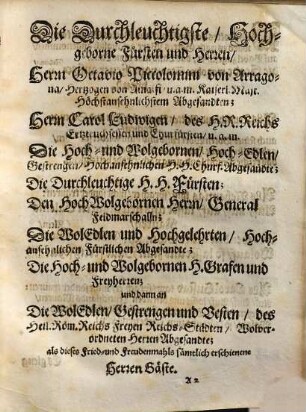 Die Durchleuchtigste / Hoch-
geborne Fürsten und Herren /
Herrn Octavio Piccolomini von Arrago-
na / Hertzogen von Amalfi / u.a.m. Kaiserl. Majt.
Höchstansehnlichstem Abgesandten:
Herrn Carol Ludwigen / des H.R. Reichs
Ertztruchsessen und Churfürsten / u.a.m.
Die Hoch- und Wolgebornen / Hoch-Edlen /
Gestrengen / Hochansehnlichen H.H. Churf. Abgesandte:
Die Durchleuchtige H.H. Fürsten:
Den Hoch Wolgebornen Herrn / General
Feldmarschalln:
Die WolEdlen und Hochgelehrten / Hoch-
ansehnlichen Fürstlichen Abgesandte:
Die Hoch- und Wolgebornen H. Grafen und
Freyherren:
und dann an
Die WolEdlen / Gestrengen und Vesten / des
Heil. Röm. Reichs Freyen Reichs-Städten / Wolver-
ordneten Herren Abgesandte:
als dieses Fried- und Freudenmahls sämtlich erschienene
Herren Gäste.
A 2